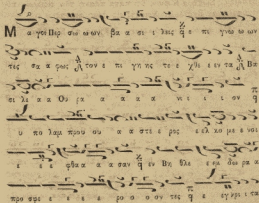 Μα γοι Περ σω ω ων βα α σι λεις ε πι γνω ω ων
τες σα φως τον ε πι γης τε χθε εν τα Βα
σι λε α α Ου ρα α α α νι ι ον
υ πο λαμ πρου ου α α στε ρος ε ελ κο με ε νοι
ε ε ε φθα α α α σαν εν Βη θλε ε εμ δω ρα α
προ σφε ε ε ε ε ρο ο ο ον τες ε εγ κρι ι τα